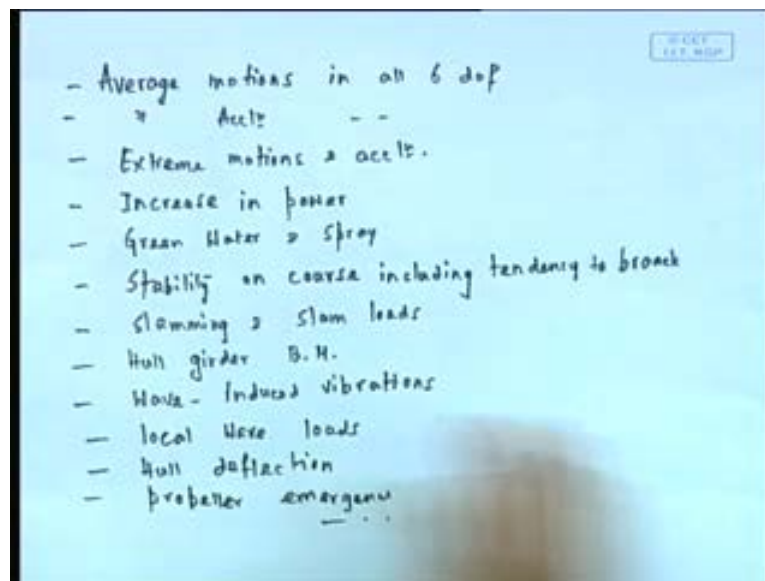 © CET
I.I.T. KGP
- Average motions in all 6 dof
- " Accln - -
- Extreme motions & accln.
- Increase in power
- Green Water & Spray
- Stability on coarse including tendency to broach
- Slamming & Slam loads
- Hull girder B.M.
- Wave-Induced vibrations
- local Wave loads
- Hull deflection
- propeller emergence
- . .